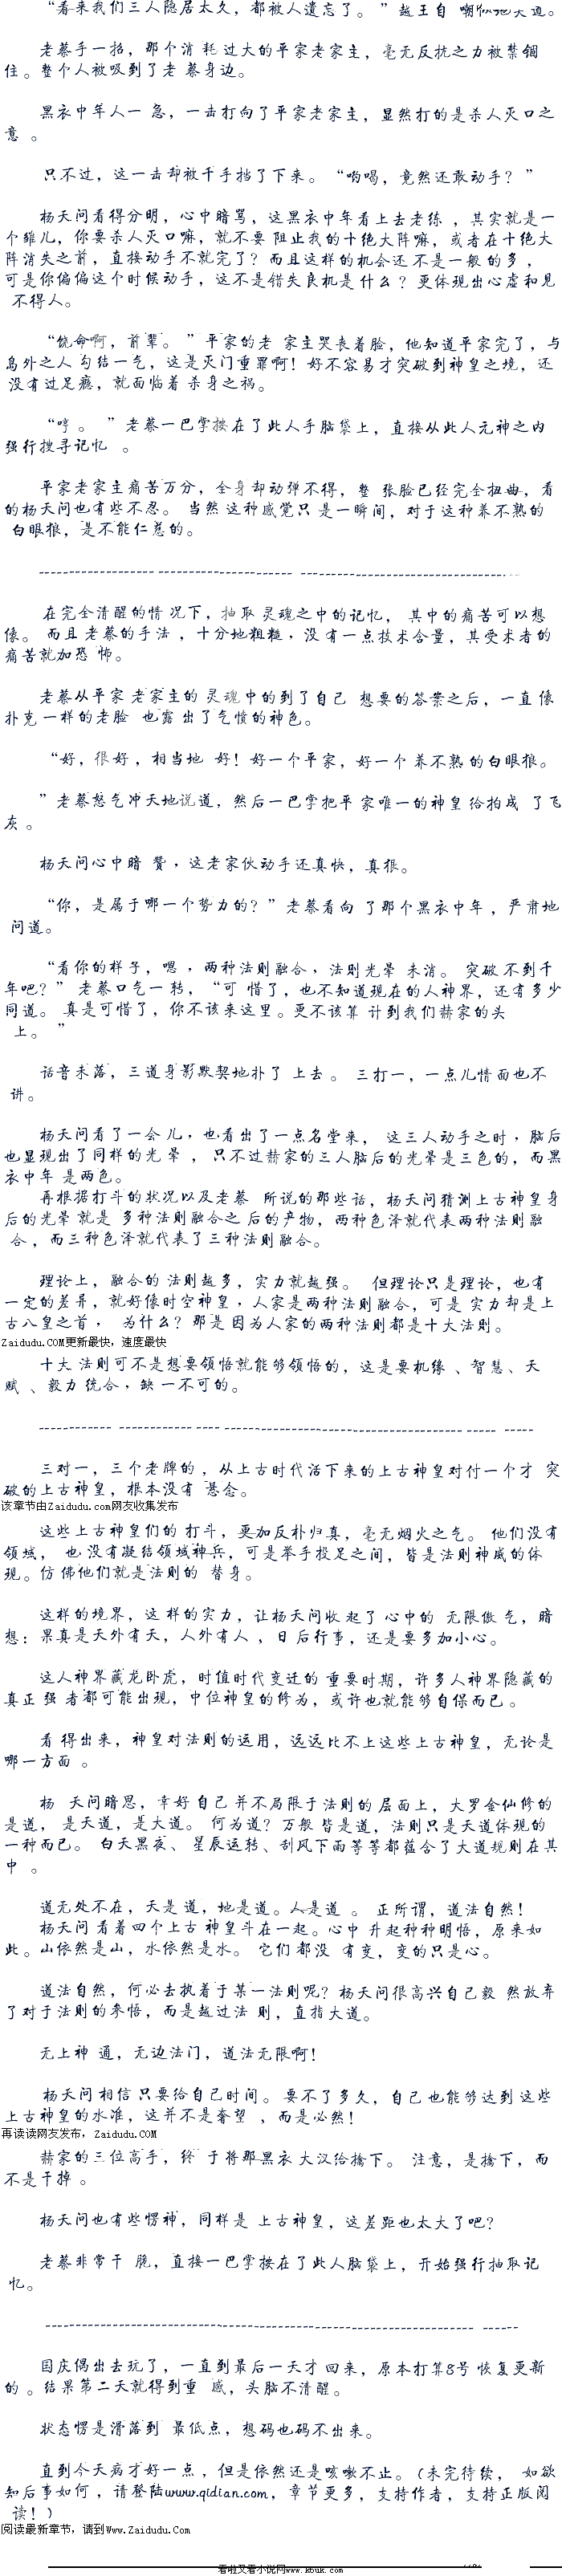 “看来我们三人隐居太久，都被人遗忘了。”越王自嘲似地笑道。
老蔡手一招，那个消耗过大的平家老家主，毫无反抗之力被禁锢
住。整个人被吸到了老蔡身边。
黑衣中年人一急，一击打向了平家老家主，显然打的是杀人灭口之
意。
只不过，这一击却被千手挡了下来。“哟喝，竟然还敢动手？”
杨天问看得分明，心中暗骂，这黑衣中年看上去老练，其实就是一
个雏儿，你要杀人灭口嘛，就不要阻止我的十绝大阵嘛，或者在十绝大
阵消失之前，直接动手不就完了？而且这样的机会还不是一般的多，
可是你偏偏这个时候动手，这不是错失良机是什么？更体现出心虚和见
不得人。
“饶命啊，前辈。”平家的老家主哭丧着脸，他知道平家完了，与
岛外之人勾结一气，这是灭门重罪啊！好不容易才突破到神皇之境，还
没有过足瘾，就面临着杀身之祸。
“哼。”老蔡一巴掌按在了此人手脑袋上，直接从此人元神之内
强行搜寻记忆。
平家老家主痛苦万分，全身却动弹不得，整张脸已经完全扭曲，看
的杨天问也有些不忍。当然这种感觉只是一瞬间，对于这种养不熟的
白眼狼，是不能仁慈的。
在完全清醒的情况下，抽取灵魂之中的记忆，其中的痛苦可以想
像。而且老蔡的手法，十分地粗糙，没有一点技术含量，其受术者的
痛苦就加恐怖。
老蔡从平家老家主的灵魂中的到了自己想要的答案之后，一直像
扑克一样的老脸也露出了气愤的神色。
“好，很好，相当地好！好一个平家，好一个养不熟的白眼狼。
”老蔡怒气冲天地说道，然后一巴掌把平家唯一的神皇给拍成了飞
灰。
杨天问心中暗赞，这老家伙动手还真快，真狠。
“你，是属于哪一个势力的？”老蔡看向了那个黑衣中年，严肃地
问道。
“看你的样子，嗯，两种法则融合，法则光晕未消。突破不到千
年吧？”老蔡口气一转，“可惜了，也不知道现在的人神界，还有多少
同道。真是可惜了，你不该来这里。更不该算计到我们赫家的头
上。”
话音未落，三道身影默契地扑了上去。三打一，一点儿情面也不
讲。
杨天问看了一会儿，也看出了一点名堂来，这三人动手之时，脑后
也显现出了同样的光晕，只不过赫家的三人脑后的光晕是三色的，而黑
衣中年是两色。
再根据打斗的状况以及老蔡所说的那些话，杨天问猜测上古神皇身
后的光晕就是多种法则融合之后的产物，两种色泽就代表两种法则融
合，而三种色泽就代表了三种法则融合。
理论上，融合的法则越多，实力就越强。但理论只是理论，也有
一定的差异，就好像时空神皇，人家是两种法则融合，可是实力却是上
古八皇之首，为什么？那是因为人家的两种法则都是十大法则。
Zaidudu.COM更新最快，速度最快
十大法则可不是想要领悟就能够领悟的，这是要机缘、智慧、天
赋、毅力统合，缺一不可的。
三对一，三个老牌的，从上古时代活下来的上古神皇对付一个才突
破的上古神皇，根本没有悬念。
该章节由Zaidudu.com网友收集发布
这些上古神皇们的打斗，更加反朴归真，毫无烟火之气。他们没有
领域，也没有凝结领域神兵，可是举手投足之间，皆是法则神威的体
现。仿佛他们就是法则的替身。
这样的境界，这样的实力，让杨天问收起了心中的无限傲气，暗
想：果真是天外有天，人外有人，日后行事，还是要多加小心。
这人神界藏龙卧虎，时值时代变迁的重要时期，许多人神界隐藏的
真正强者都可能出现，中位神皇的修为，或许也就能够自保而已。
看得出来，神皇对法则的运用，远远比不上这些上古神皇，无论是
哪一方面。
杨天问暗思，幸好自己并不局限于法则的层面上，大罗金仙修的
是道，是天道，是大道。何为道？万般皆是道，法则只是天道体现的
一种而已。白天黑夜、星辰运转、刮风下雨等等都蕴含了大道规则在其
中。
道无处不在，天是道，地是道。人是道。正所谓，道法自然！
杨天问看着四个上古神皇斗在一起。心中升起种种明悟，原来如
此。山依然是山，水依然是水。它们都没有变，变的只是心。
道法自然，何必去执着于某一法则呢？杨天问很高兴自己毅然放弃
了对于法则的参悟，而是越过法则，直指大道。
无上神通，无边法门，道法无限啊！
杨天问相信只要给自己时间。要不了多久，自己也能够达到这些
上古神皇的水准，这并不是奢望，而是必然！
再读读网友发布，Zaidudu.COM
赫家的三位高手，终于将那黑衣大议给擒下。注意，是擒下，而
不是干掉。
杨天问也有些愣神，同样是上古神皇，这差距也太大了吧？
老蔡非常干脆，直接一巴掌按在了此人脑袋上，开始强行抽取记
忆。
国庆偶出去玩了，一直到最后一天才回来，原本打算8号恢复更新
的。结果第二天就得到重感，头脑不清醒。
状态愣是滑落到最低点，想码也码不出来。
直到今天病才好一点，但是依然还是咳嗽不止。（未完待续，如欲
知后事如何，请登陆www.qidian.com，章节更多，支持作者，支持正版阅
读！）
阅读最新章节，请到Www.Zaidudu.Com
看啦又看小说网www.kbuk.com